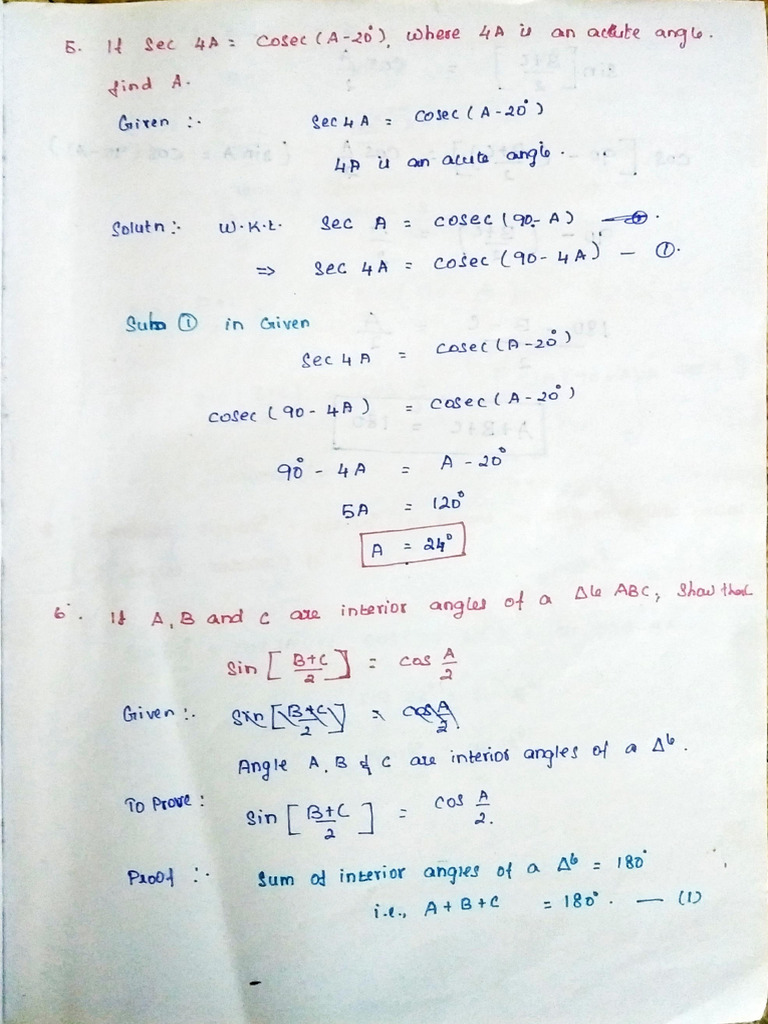 5. If sec 4A = cosec (A-20°), where 4A is an acute angle.
find A.
Given :- sec 4A = cosec (A-20°)
4A is an acute angle.
Solutn :- W.K.t. sec A = cosec (90-A)
⇒ sec 4A = cosec (90-4A) — ①.
Sub ① in Given
sec 4A = cosec (A-20°)
cosec (90-4A) = cosec (A-20°)
90° - 4A = A - 20°
5A = 120°
A = 24°
6. If A, B and C are interior angles of a Δle ABC, show that
sin [B+C/2] = cos A/2
Given :- sin [B+C/2] = cos A/2
Angle A, B & C are interior angles of a Δle.
To Prove : sin [B+C/2] = cos A/2.
Proof :- Sum of interior angles of a Δle = 180°
i.e., A + B + C = 180°. — (1)